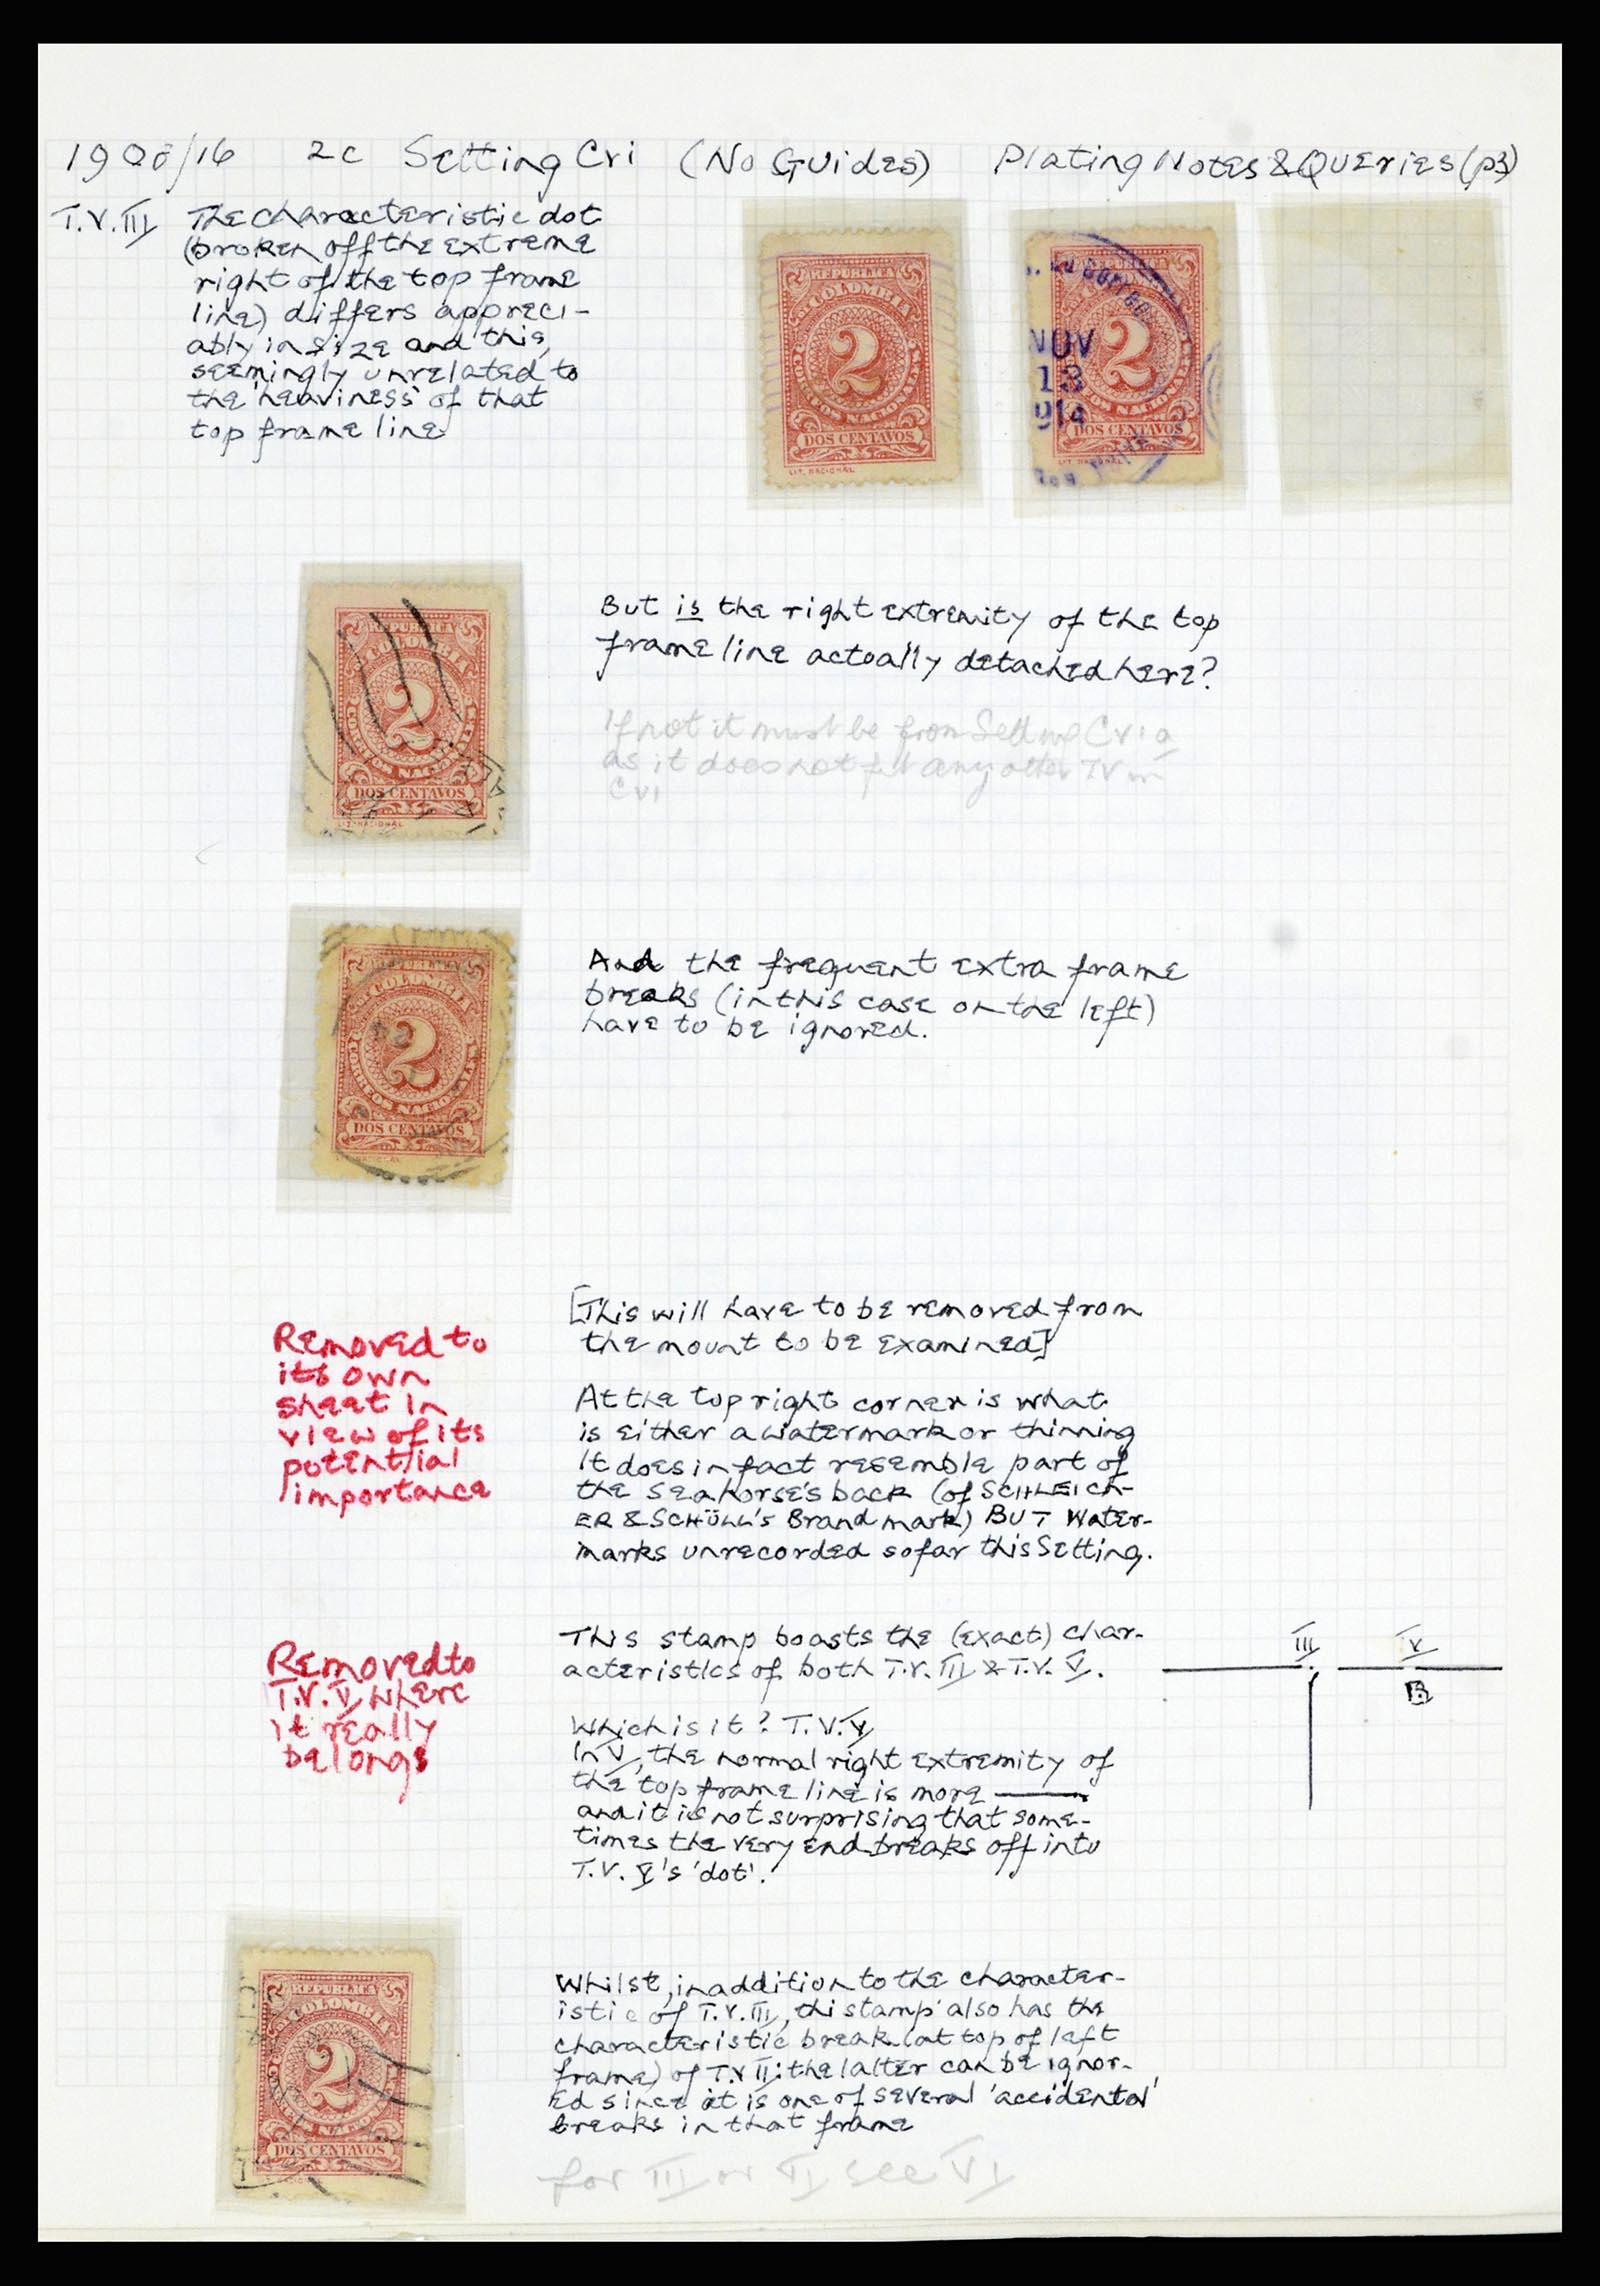 1908/16 2c Setting Cvi (No Guides) Plating Notes & Queries (p3)
T.V.III The characteristic dot
(broken off the extreme
right of the top frame
line) differs appreci-
ably in size and this,
seemingly unrelated to
the 'heaviness' of that
top frame line
REPUBLICA
COLOMBIA
2
CORREOS NACIONALES
DOS CENTAVOS
LIT. NACIONAL
REPUBLICA
2
DOS NACIONALES
DOS CENTAVOS
LIT. NACIONAL
NOV
13
914
REPUBLICA
COLOMBIA
2
CORREOS NACIONALES
DOS CENTAVOS
LIT. NACIONAL
But is the right extremity of the top
frame line actually detached here?
If not it must be from Setting Cvi a
as it does not fit any other TV in
Cvi
REPUBLICA
COLOMBIA
2
CORREOS NACIONALES
DOS CENTAVOS
NACIONAL
And the frequent extra frame
breaks (in this case on the left)
have to be ignored.
Removed to
its own
sheet in
view of its
potential
importance
[This will have to be removed from
the mount to be examined]
At the top right corner is what
is either a watermark or thinning
It does in fact resemble part of
the seahorse's back (of SCHLEICH-
ER & SCHÜLL's Brand mark) BUT Water-
marks unrecorded so far this Setting.
Removed to
T.V. V where
it really
belongs
This stamp boasts the (exact) char-
acteristics of both T.V. III & T.V. V.
III V
B
Which is it? T.V. V
In V, the normal right extremity of
the top frame line is more
and it is not surprising that some-
times the very end breaks off into
T.V. V's 'dot'.
REPUBLICA
COLOMBIA
2
DOS CENTAVOS
Whilst, in addition to the character-
istic of T.V. III, this stamp also has the
characteristic break (at top of left
frame) of T.V II: the latter can be ignor-
ed since it is one of several 'accidental'
breaks in that frame
for III or VI see VI